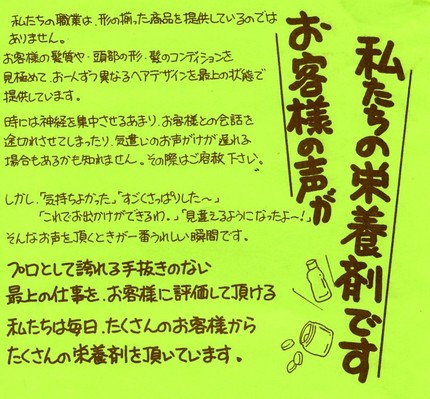 お客様の声が
私たちの栄養剤です
私たちの職業は、形の揃った商品を提供しているのでは
ありません。
お客様の髪質や・頭部の形・髪のコンディションを
見極めて、お一人ずつ異なるヘアデザインを最上の状態で
提供しています。
時には神経を集中させるあまり、お客様との会話を
途切れさせてしまったり、気遣いのお声がけが遅れる
場合もあるかも知れません。その際はご容赦下さい。
しかし、「気持ちよかった。」「すごくさっぱりした〜」
「これでお出かけができるわ。」「見違えるようになったよ〜!」
そんなお声を頂くときが一番うれしい瞬間です。
プロとして誇れる手抜きのない
最上の仕事を、お客様に評価して頂ける
私たちは毎日、たくさんのお客様から
たくさんの栄養剤を頂いています。